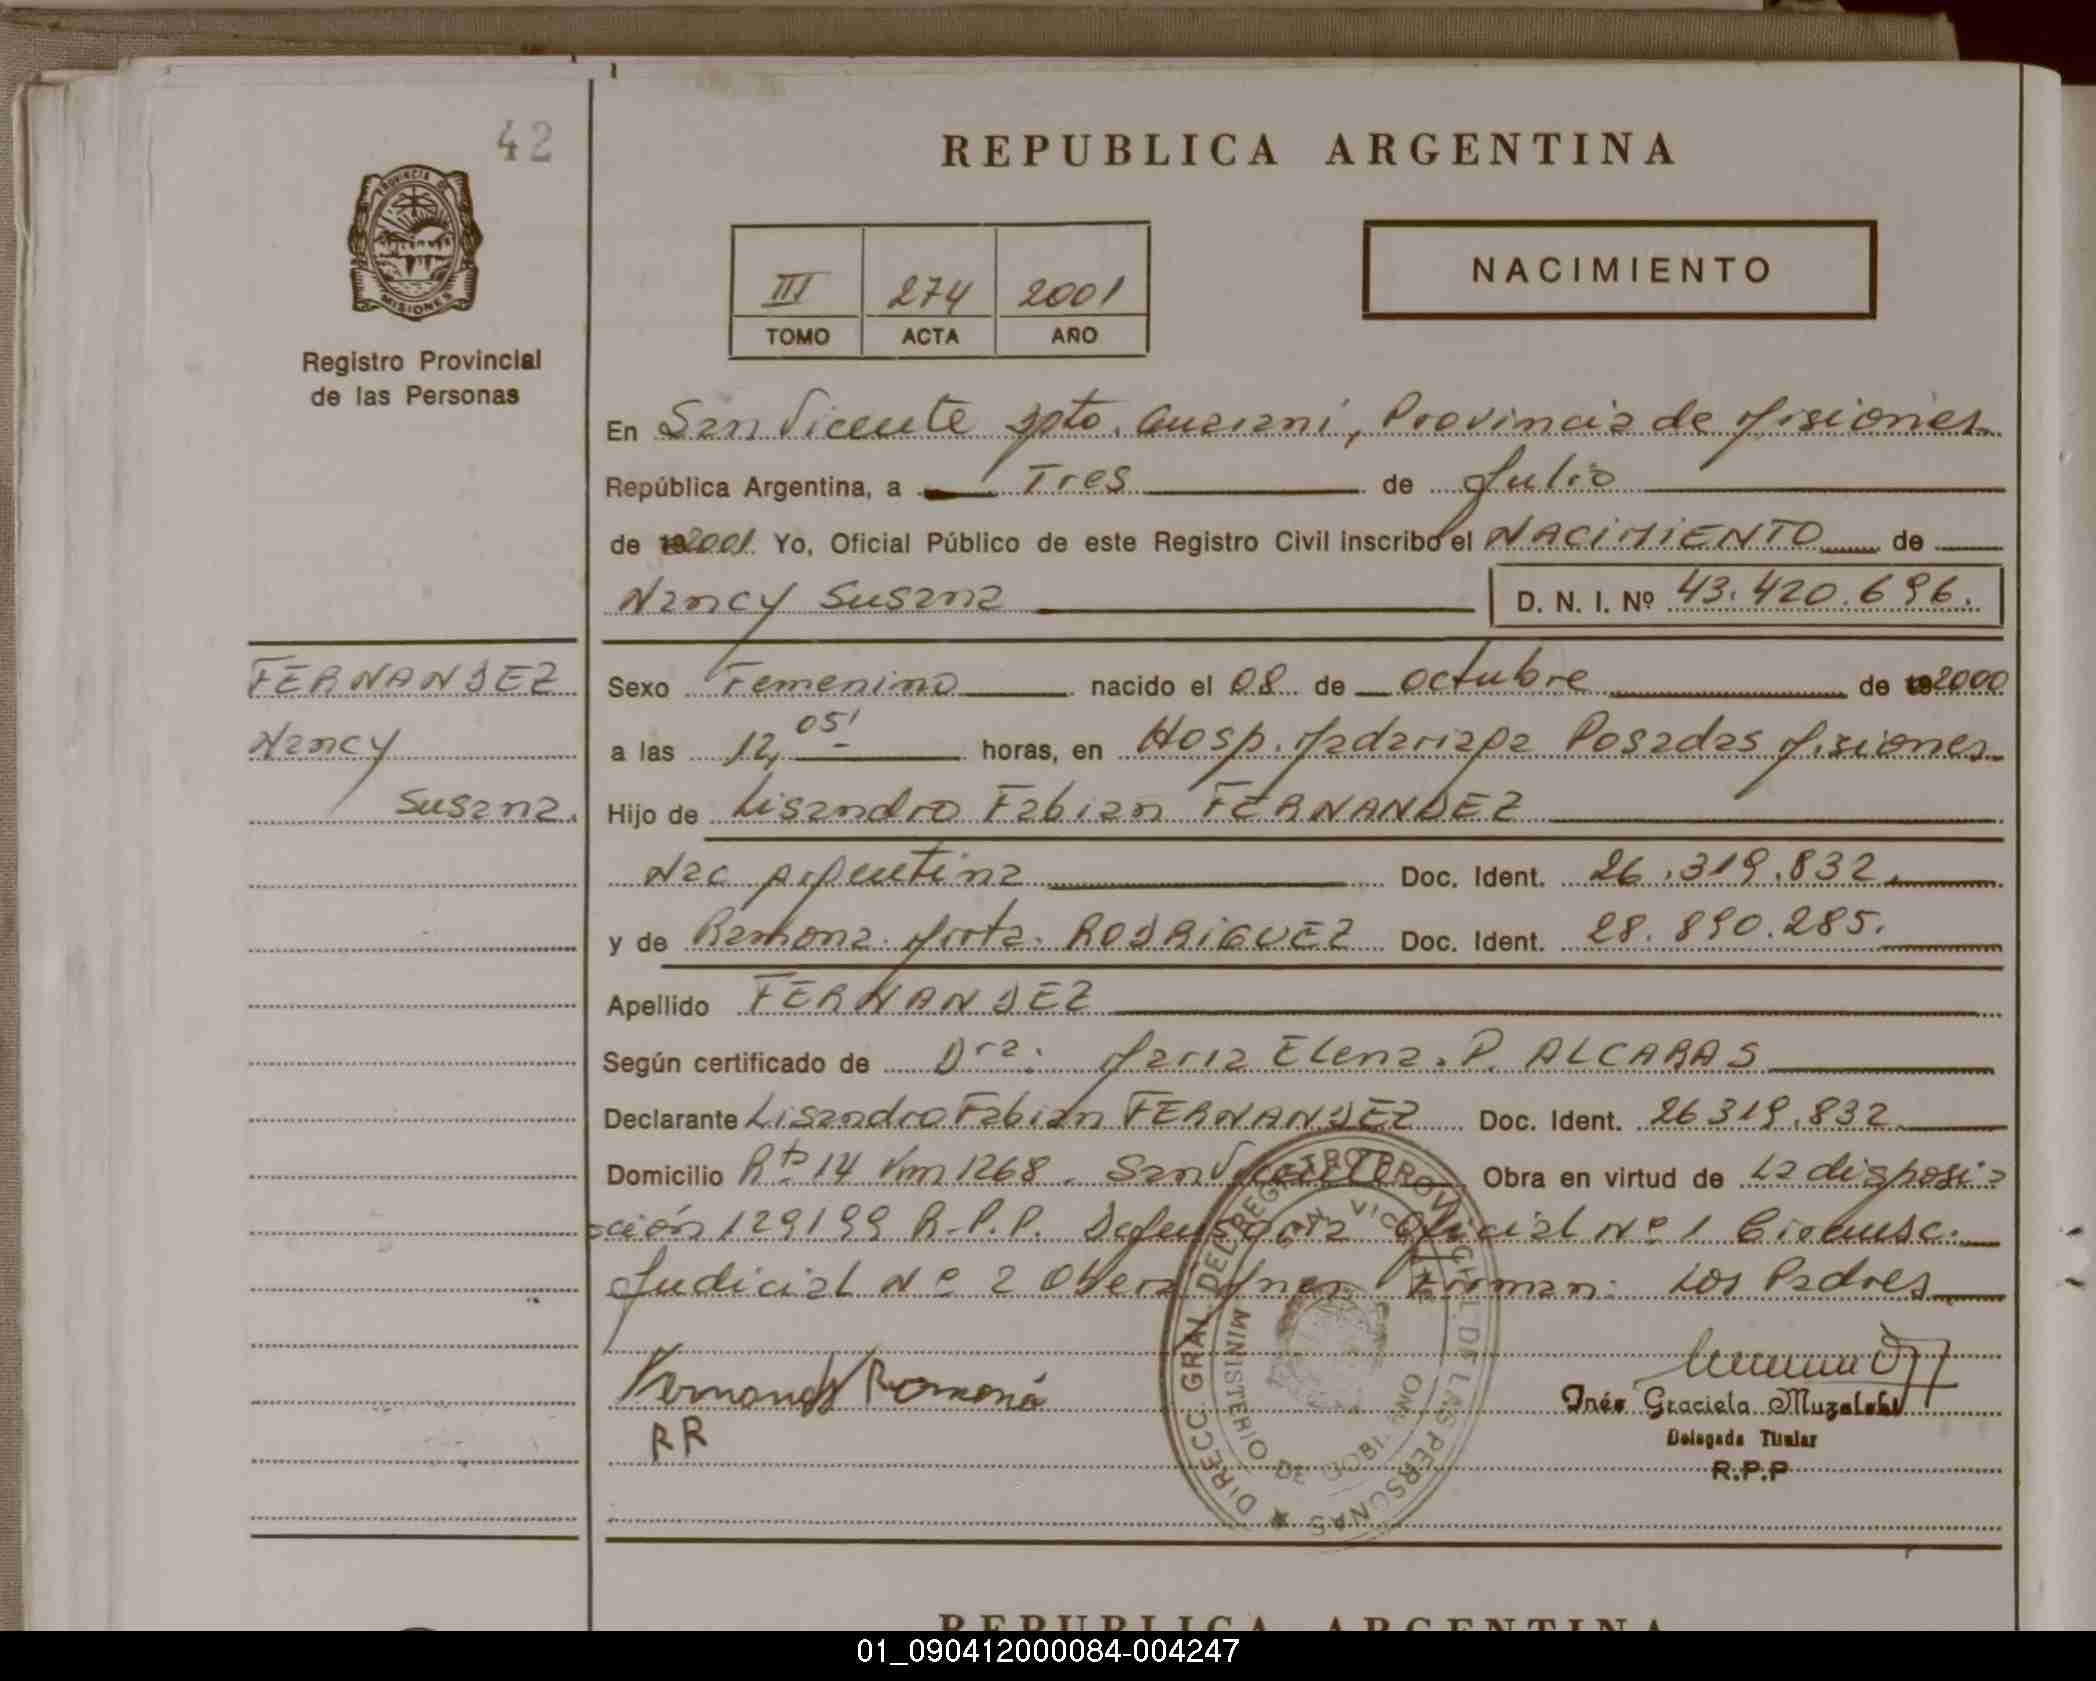 42
PROVINCIA DE
MISIONES
Registro Provincial
de las Personas
REPUBLICA ARGENTINA
III 274 2001
TOMO ACTA AÑO
NACIMIENTO
En San Vicente Dpto. Guarani, Provincia de Misiones
República Argentina, a Tres de Julio
de 2001 Yo, Oficial Público de este Registro Civil inscribo el NACIMIENTO de
Nancy Susana D. N. I. Nº 43.420.696.
FERNANDEZ
Nancy
Susana.
Sexo Femenino nacido el 08 de octubre de 2000
a las 12,05' horas, en Hosp. Madariaga Posadas Misiones
Hijo de Lisandro Fabian FERNANDEZ
Nac Argentina Doc. Ident. 26.319.832.
y de Ramona Mirta RODRIGUEZ Doc. Ident. 28.890.285.
Apellido FERNANDEZ
Según certificado de Dra. Maria Elena. P. ALCARAS
Declarante Lisandro Fabian FERNANDEZ Doc. Ident. 26319.832
Domicilio Rta 14 Km 1268. San Vicente Obra en virtud de La disposi=
=ción 129199 R.P.P. Defensoria Oficial Nº 1 Circunsc.
Judicial Nº 2 Obera Mnes Firman: Los Padres
Fernandez Ramona
RR
DIRECC. GRAL. DEL REGISTRO PROVINCIAL DE LAS PERSONAS
SAN VICENTE
MINISTERIO DE GOBIERNO
Inés Graciela Muzaleski
Delegada Titular
R.P.P
REPUBLICA ARGENTINA
01_090412000084-004247